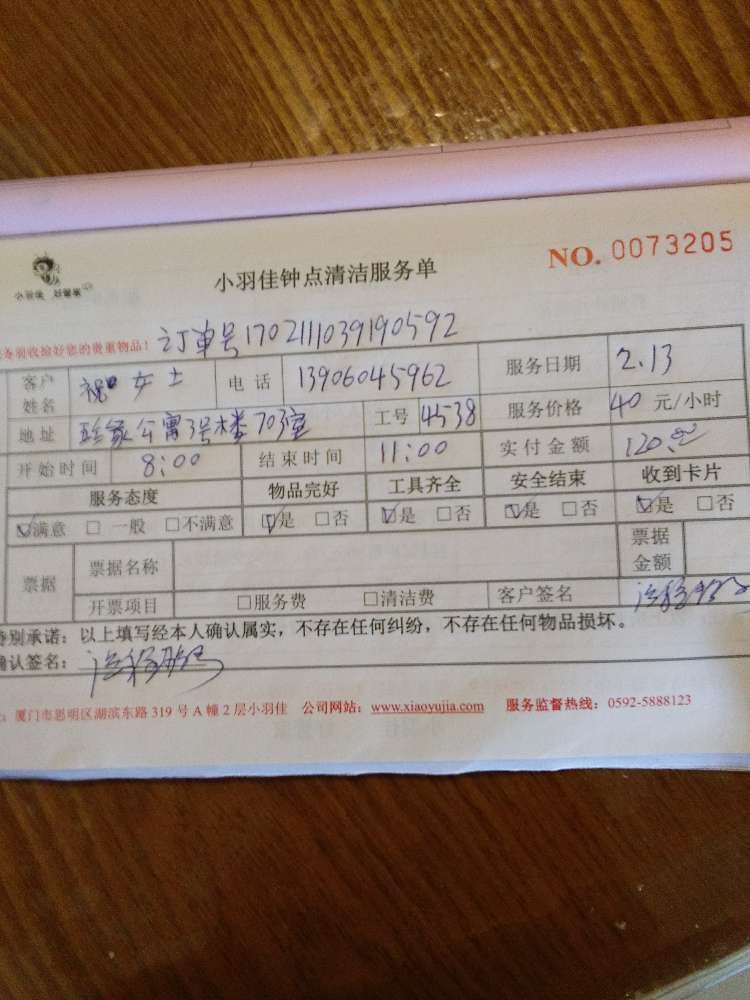 小羽佳 好管家
小羽佳钟点清洁服务单
NO. 0073205
验收给好您的贵重物品! 订单号1702111039190592
客户姓名 祝 女士 电话 13906045962 服务日期 2.13
地址 公寓3号楼703室 工号 4538 服务价格 40 元/小时
开始时间 8:00 结束时间 11:00 实付金额 120
服务态度 物品完好 工具齐全 安全结束 收到卡片
☑满意 □一般 □不满意 ☑是 □否 ☑是 □否 ☑是 □否 ☑是 □否
票据 票据名称 票据金额
开票项目 □服务费 □清洁费 客户签名
特别承诺：以上填写经本人确认属实，不存在任何纠纷，不存在任何物品损坏。
确认签名：
厦门市思明区湖滨东路 319 号 A 幢 2 层小羽佳 公司网站：www.xiaoyujia.com 服务监督热线：0592-5888123